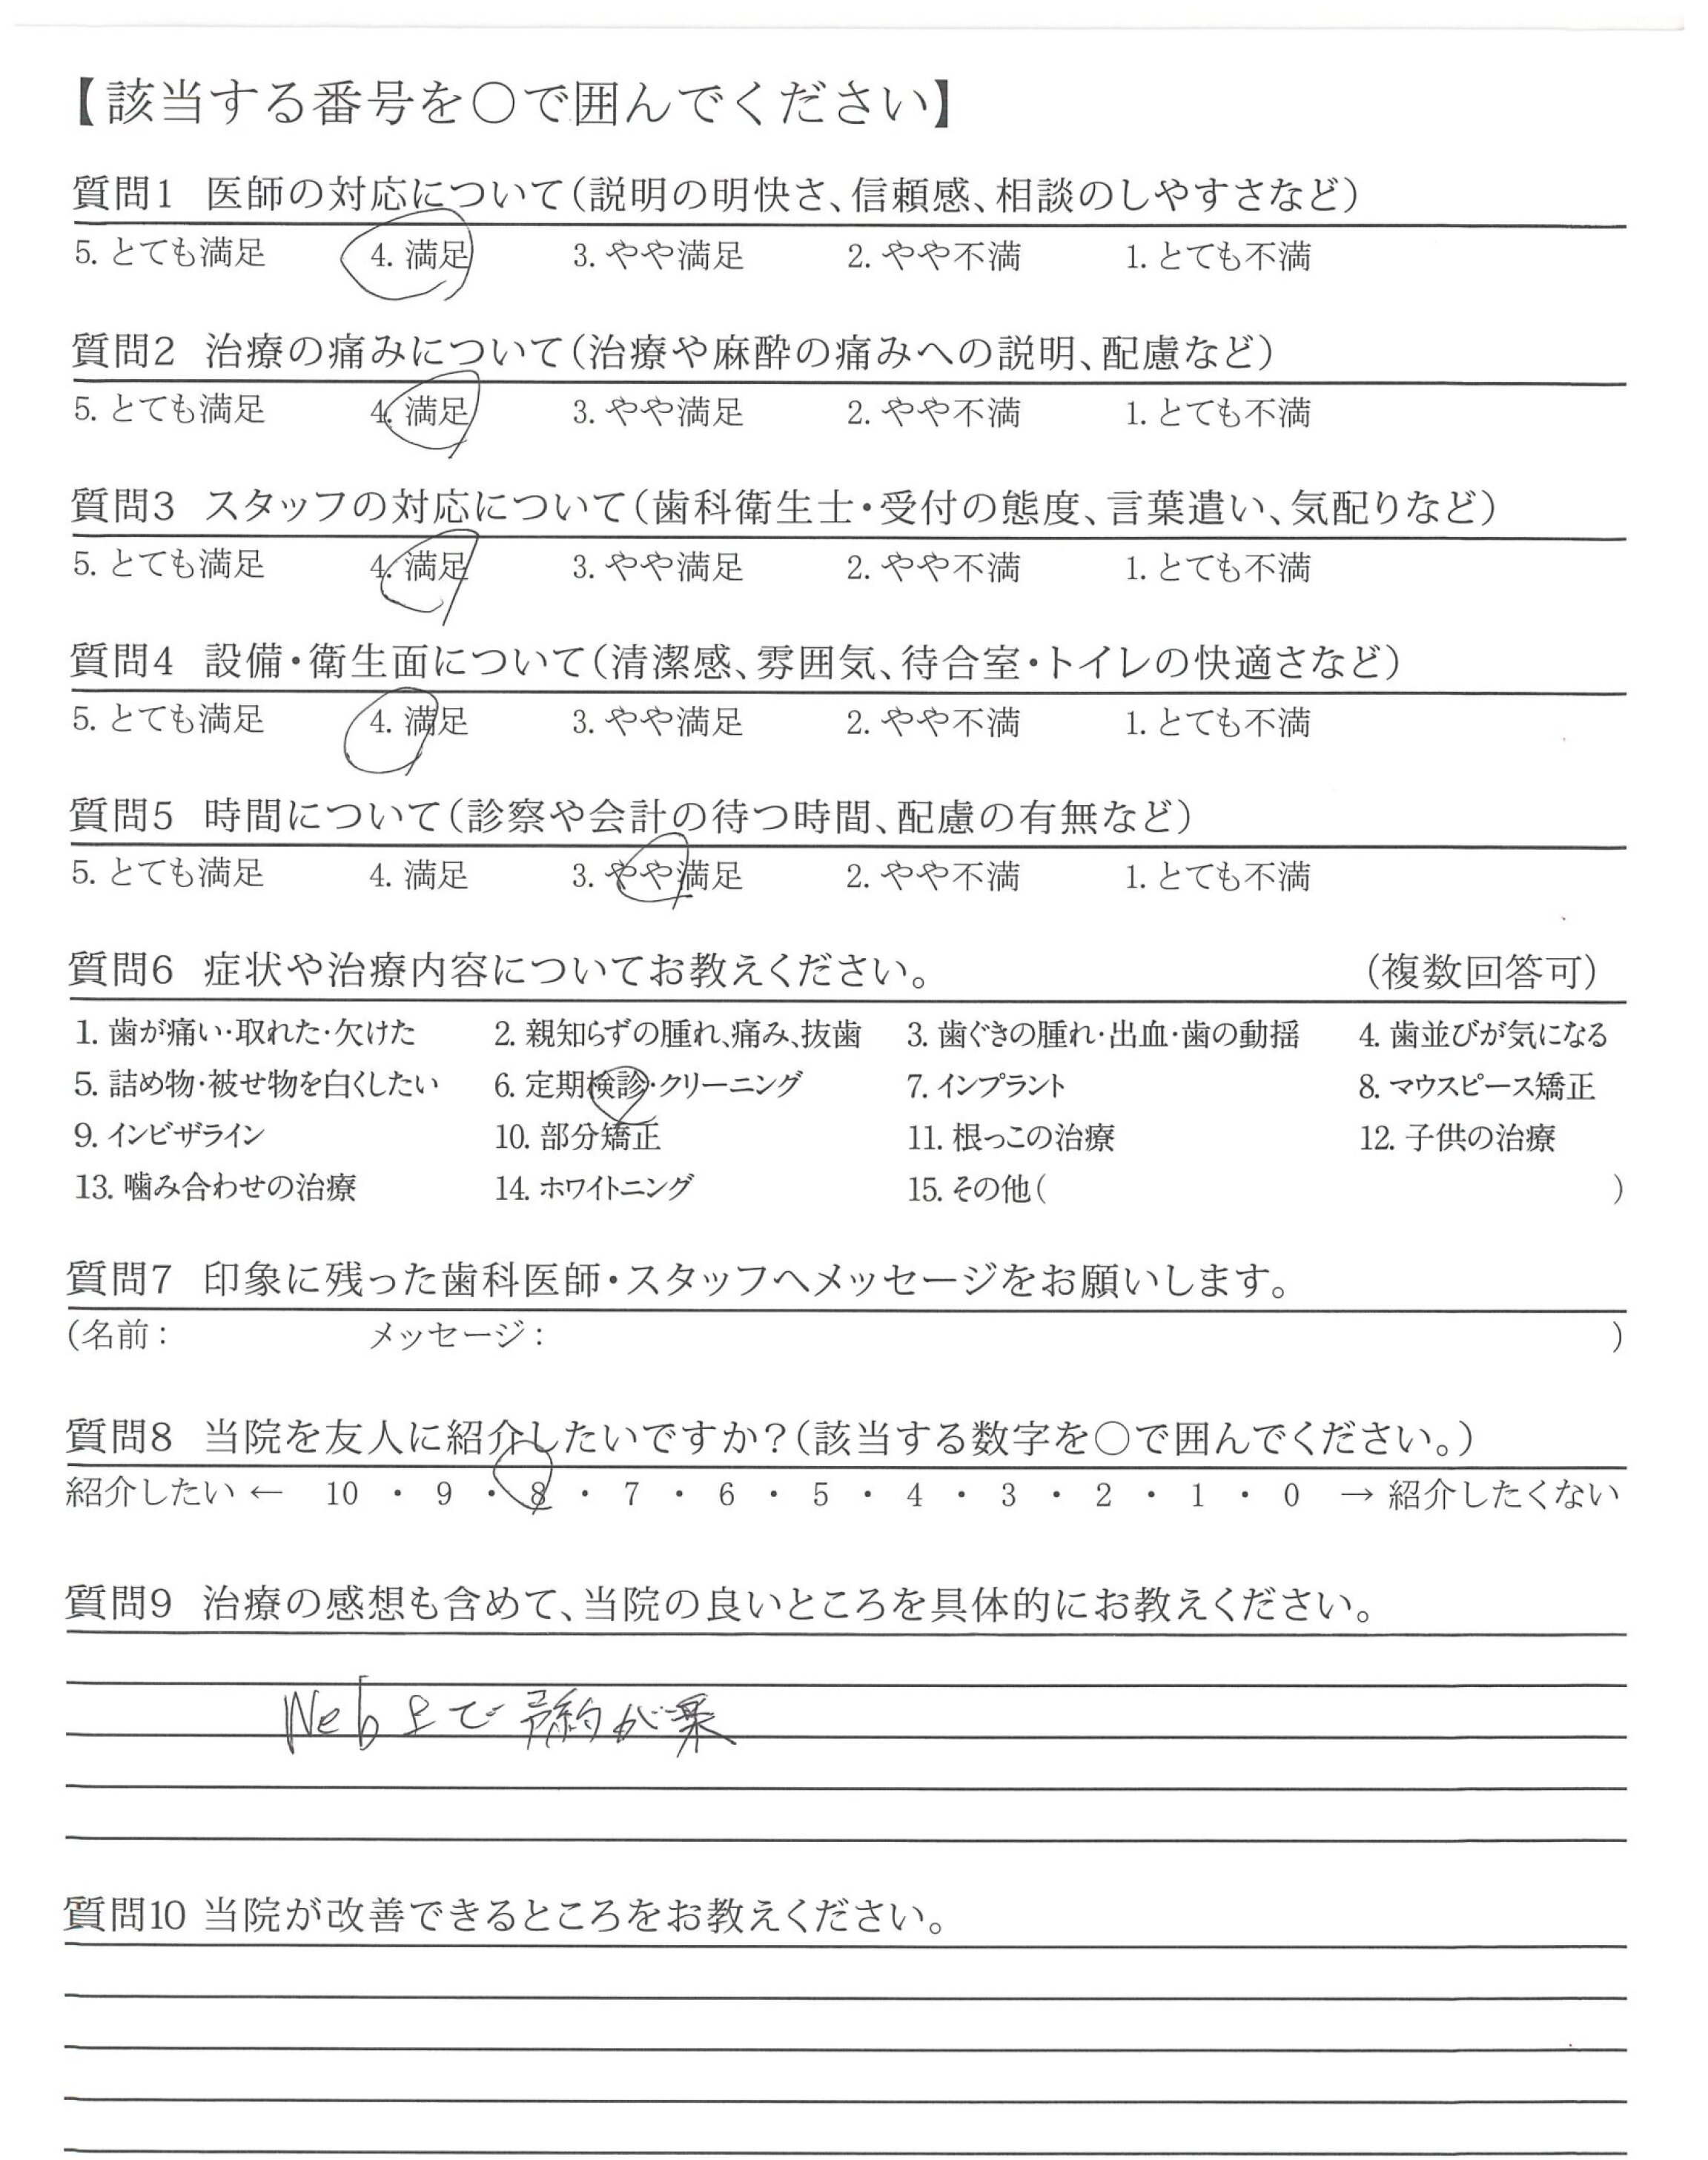 【該当する番号を○で囲んでください】
質問1 医師の対応について(説明の明快さ、信頼感、相談のしやすさなど)
5. とても満足 4. 満足 3. やや満足 2. やや不満 1. とても不満
質問2 治療の痛みについて(治療や麻酔の痛みへの説明、配慮など)
5. とても満足 4. 満足 3. やや満足 2. やや不満 1. とても不満
質問3 スタッフの対応について(歯科衛生士・受付の態度、言葉遣い、気配りなど)
5. とても満足 4. 満足 3. やや満足 2. やや不満 1. とても不満
質問4 設備・衛生面について(清潔感、雰囲気、待合室・トイレの快適さなど)
5. とても満足 4. 満足 3. やや満足 2. やや不満 1. とても不満
質問5 時間について(診察や会計の待つ時間、配慮の有無など)
5. とても満足 4. 満足 3. やや満足 2. やや不満 1. とても不満
質問6 症状や治療内容についてお教えください。 (複数回答可)
1. 歯が痛い・取れた・欠けた 2. 親知らずの腫れ、痛み、抜歯 3. 歯ぐきの腫れ・出血・歯の動揺 4. 歯並びが気になる
5. 詰め物・被せ物を白くしたい 6. 定期検診・クリーニング 7. インプラント 8. マウスピース矯正
9. インビザライン 10. 部分矯正 11. 根っこの治療 12. 子供の治療
13. 噛み合わせの治療 14. ホワイトニング 15. その他( )
質問7 印象に残った歯科医師・スタッフへメッセージをお願いします。
(名前: メッセージ: )
質問8 当院を友人に紹介したいですか?(該当する数字を○で囲んでください。)
紹介したい ← 10 ・ 9 ・ 8 ・ 7 ・ 6 ・ 5 ・ 4 ・ 3 ・ 2 ・ 1 ・ 0 → 紹介したくない
質問9 治療の感想も含めて、当院の良いところを具体的にお教えください。
Web上で予約が楽
質問10 当院が改善できるところをお教えください。